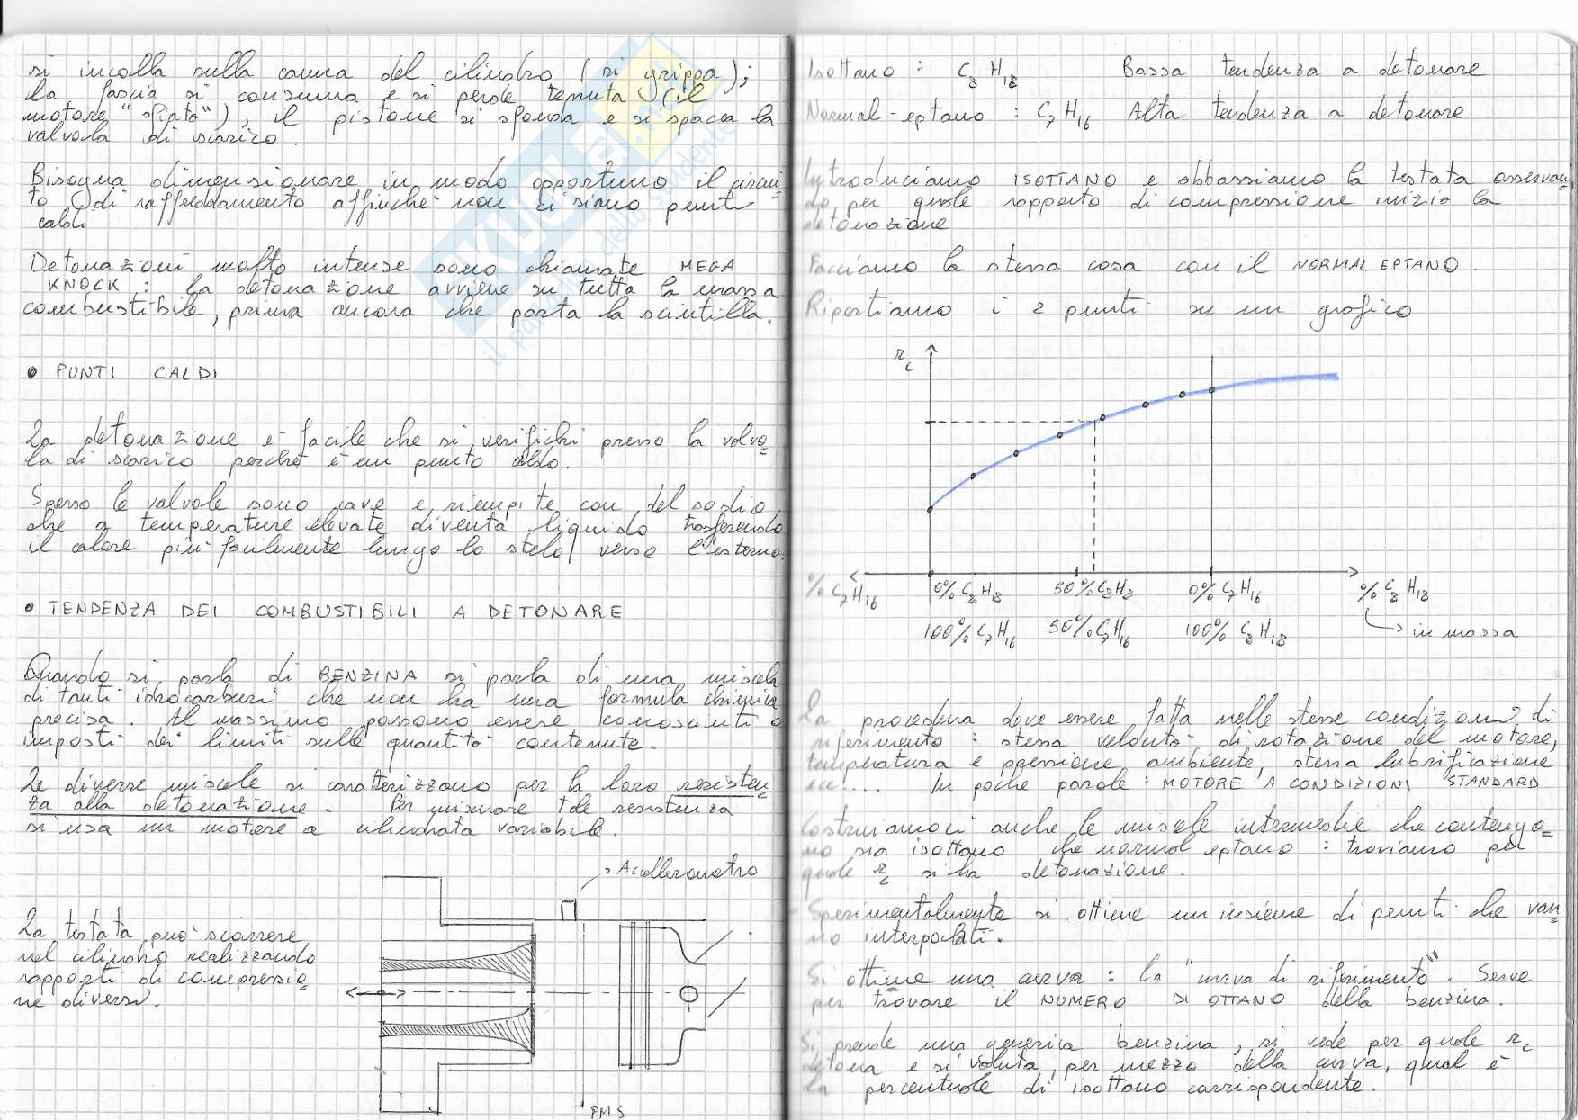 si incolla sulla canna del cilindro (si grippa);
la fascia si consuma e si perde tenuta (il
motore "sfiata"), il pistone si sfonda e si spacca la
valvola di scarico.
Bisogna dimensionare in modo opportuno il circui-
to di raffreddamento affinché non ci siano punti
caldi.
Detonazioni molto intense sono chiamate MEGA
KNOCK : la detonazione avviene su tutta la massa
combustibile, prima ancora che parta la scintilla.
• PUNTI CALDI
La detonazione è facile che si verifichi presso la valvo=
la di scarico perché è un punto caldo.
Spesso le valvole sono cave e riempite con del sodio
che a temperature elevate diventa liquido trasferendo
il calore più facilmente lungo lo stelo, verso l'esterno.
• TENDENZA DEI COMBUSTIBILI A DETONARE
Quando si parla di BENZINA si parla di una miscela
di tanti idrocarburi che non ha una formula chimica
precisa. Al massimo possono essere conosciuti o
imposti dei limiti sulle quantità contenute.
Le diverse miscele si caratterizzano per la loro resisten=
za alla detonazione. Per misurare tale resistenza
si usa un motore a cilindrata variabile.
Accellerometro
La testata può scorrere
nel cilindro realizzando
rapporti di compressio=
ne diversi.
PMS
Isottano : C8 H18 Bassa tendenza a detonare
Normal-eptano : C7 H16 Alta tendenza a detonare
Introduciamo ISOTTANO e abbassiamo la testata osservan=
do per quale rapporto di compressione inizia la
detonazione
Facciamo la stessa cosa con il NORMAL EPTANO.
Riportiamo i 2 punti su un grafico
rc
% C7 H16 0% C8 H18 50% C8 H8 0% C7 H16 % C8 H18
100% C7 H16 50% C7 H16 100% C8 H18 in massa
La procedura deve essere fatta nelle stesse condizioni di
riferimento : stessa velocità di rotazione del motore,
temperatura e pressione ambiente, stessa lubrificazione
ecc.... In poche parole : MOTORE A CONDIZIONI STANDARD
Costruiamoci anche le miscele intermedie che contengo=
no sia isottano che normal eptano : troviamo per
quale rc si ha detonazione.
Sperimentalmente si ottiene un insieme di punti che van=
no interpolati.
Si ottiene una curva : la "curva di riferimento". Serve
per trovare il NUMERO DI OTTANO della benzina.
Si prende una generica benzina, si vede per quale rc
detona e si valuta, per mezzo della curva, qual è
la percentuale di isottano corrispondente.